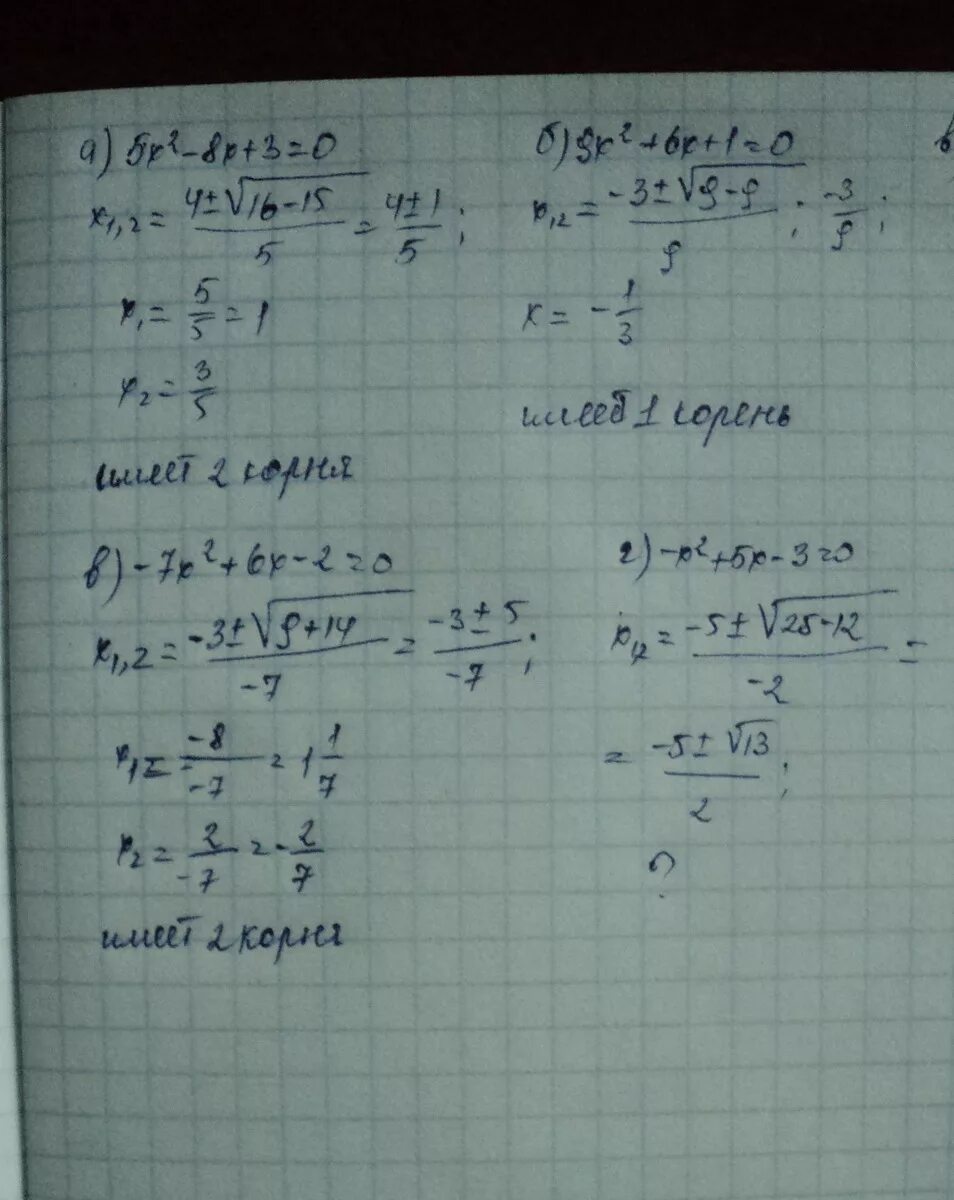 а) 5x² - 8x + 3 = 0
x₁,₂ = (4 ± √(16 - 15))/5 = (4 ± 1)/5 ;
x₁ = 5/5 = 1
x₂ = 3/5
имеет 2 корня
б) 9x² + 6x + 1 = 0
x₁₂ = (-3 ± √(9 - 9))/9 ; -3/9 ;
x = -1/3
имеет 1 корень
в)
в) -7x² + 6x - 2 = 0
x₁,₂ = (-3 ± √(9 + 14))/-7 = (-3 ± 5)/-7 ;
x₁ = -8/-7 = 1 1/7
x₂ = 2/-7 = -2/7
имеет 2 корня
г) -x² + 5x - 3 = 0
x₁₂ = (-5 ± √(25 - 12))/-2 =
= (-5 ± √13)/2 ;
?